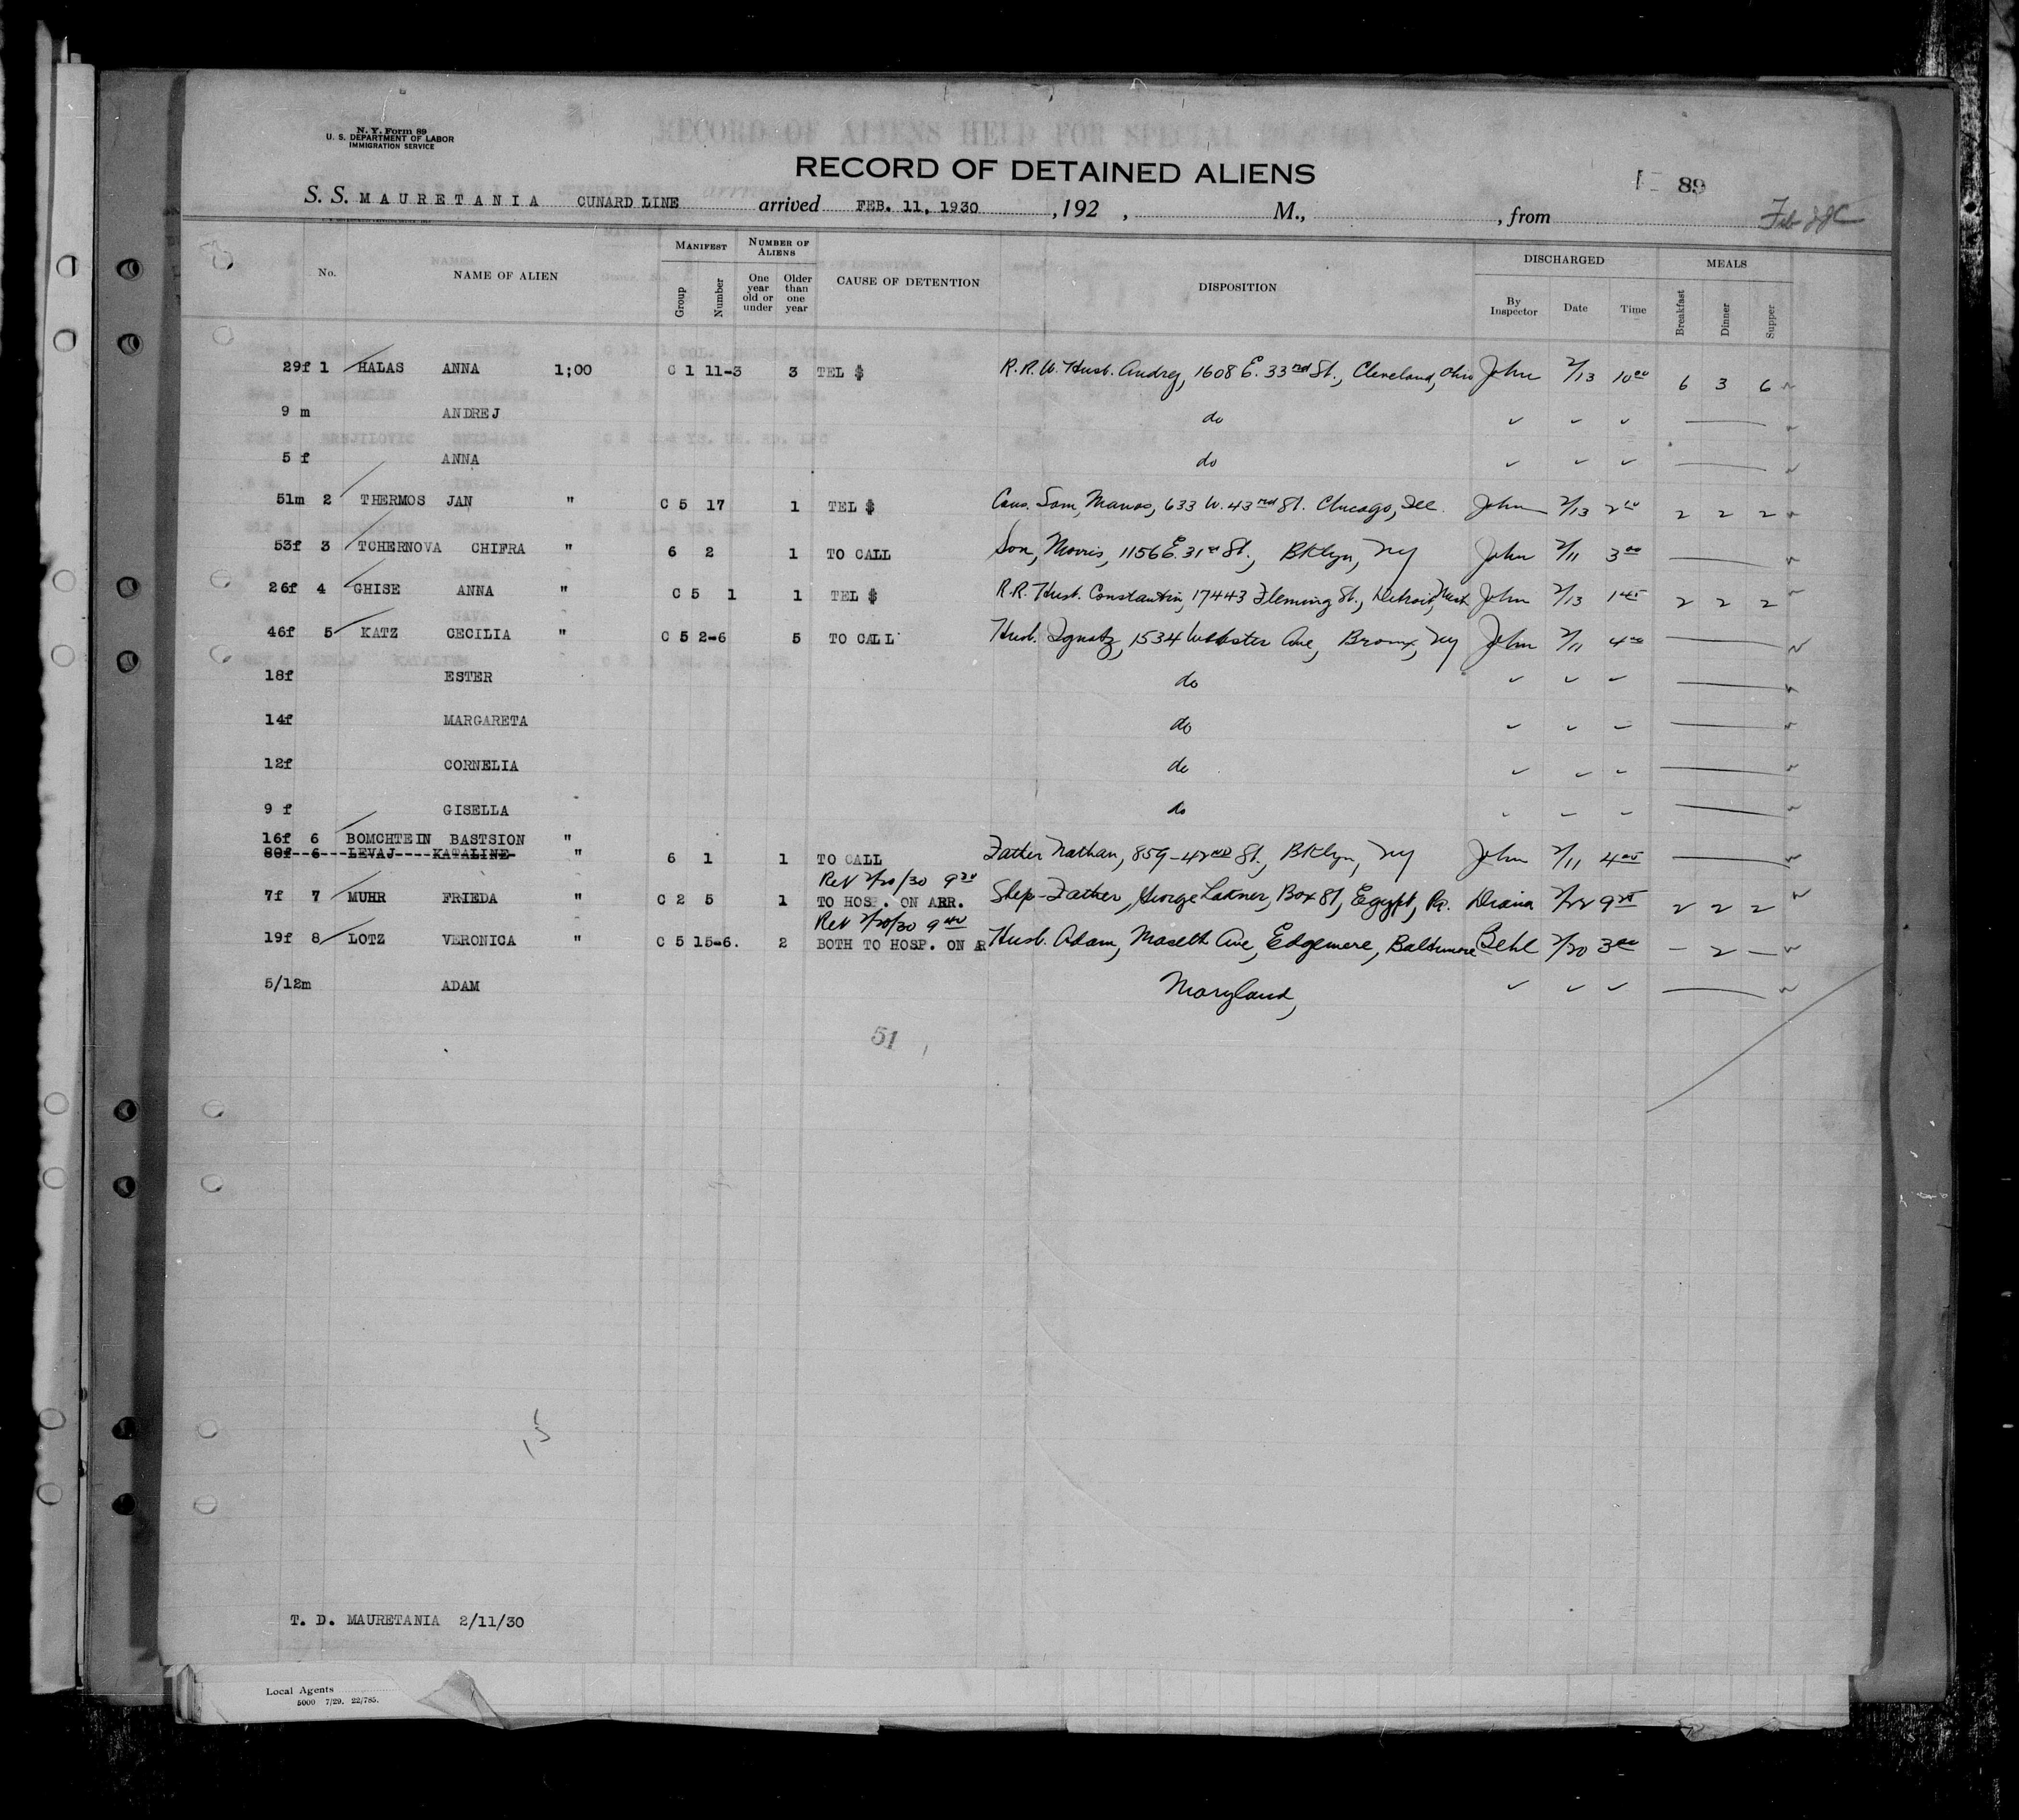 N. Y. Form 89
U. S. DEPARTMENT OF LABOR
IMMIGRATION SERVICE
RECORD OF ALIENS HELD FOR SPECIAL
RECORD OF DETAINED ALIENS
89
S. S. MAURETANIA CUNARD LINE arrived FEB. 11, 1930, 192 , M., , from
No. NAME OF ALIEN MANIFEST Group Number NUMBER OF ALIENS One year old or under Older than one year CAUSE OF DETENTION DISPOSITION DISCHARGED By Inspector Date Time MEALS Breakfast Dinner Supper
29f 1 HALAS ANNA 1;00 C 1 11-3 3 TEL $ R.R.W. Husb. Andrej, 1608 E. 33rd St., Cleveland, Ohio John 2/13 10 00 6 3 6
9 m ANDREJ do ✓ ✓ ✓
5 f ANNA do ✓ ✓ ✓
51m 2 THERMOS JAN " C 5 17 1 TEL $ Cous. Sam, Manos, 633 W. 43rd St. Chicago, Ill. John 2/13 2 2 2
53f 3 TCHERNOVA CHIFRA " 6 2 1 TO CALL Son, Morris, 1156 E. 31st St., Bklyn, NY John 2/11 3 00
26f 4 GHISE ANNA " C 5 1 1 TEL $ R.R. Husb. Constantin, 17443 Fleming St., Detroit, Mich John 2/13 1 45 2 2 2
46f 5 KATZ CECILIA " C 5 2-6 5 TO CALL Husb. Ignatz, 1534 Webster Ave, Bronx, NY John 2/11 4 00
18f ESTER do ✓ ✓ ✓
14f MARGARETA do ✓ ✓ ✓
12f CORNELIA do ✓ ✓ ✓
9 f GISELLA do
16f 6 BOMCHTEIN BASTSION "
80f--6---LEVAJ----KATALINE- " 6 1 1 TO CALL Father Nathan, 859-42nd St., Bklyn, NY John 2/11 4 05
Rev 2/20/30 9
7f 7 MUHR FRIEDA " C 2 5 1 TO HOSP. ON ARR. Step-Father, George Latner, Box 81, Egypt, Pa. 2/22 9 2 2 2
Rev 2/20/30 9
19f 8 LOTZ VERONICA " C 5 15-6. 2 BOTH TO HOSP. ON A Husb. Adam, Maseth Ave, Edgemere, Baltimore 2/20 3 00 - 2 -
5/12m ADAM Maryland, ✓ ✓ ✓
51
T. D. MAURETANIA 2/11/30
Local Agents
5000 7/29. 22/785.